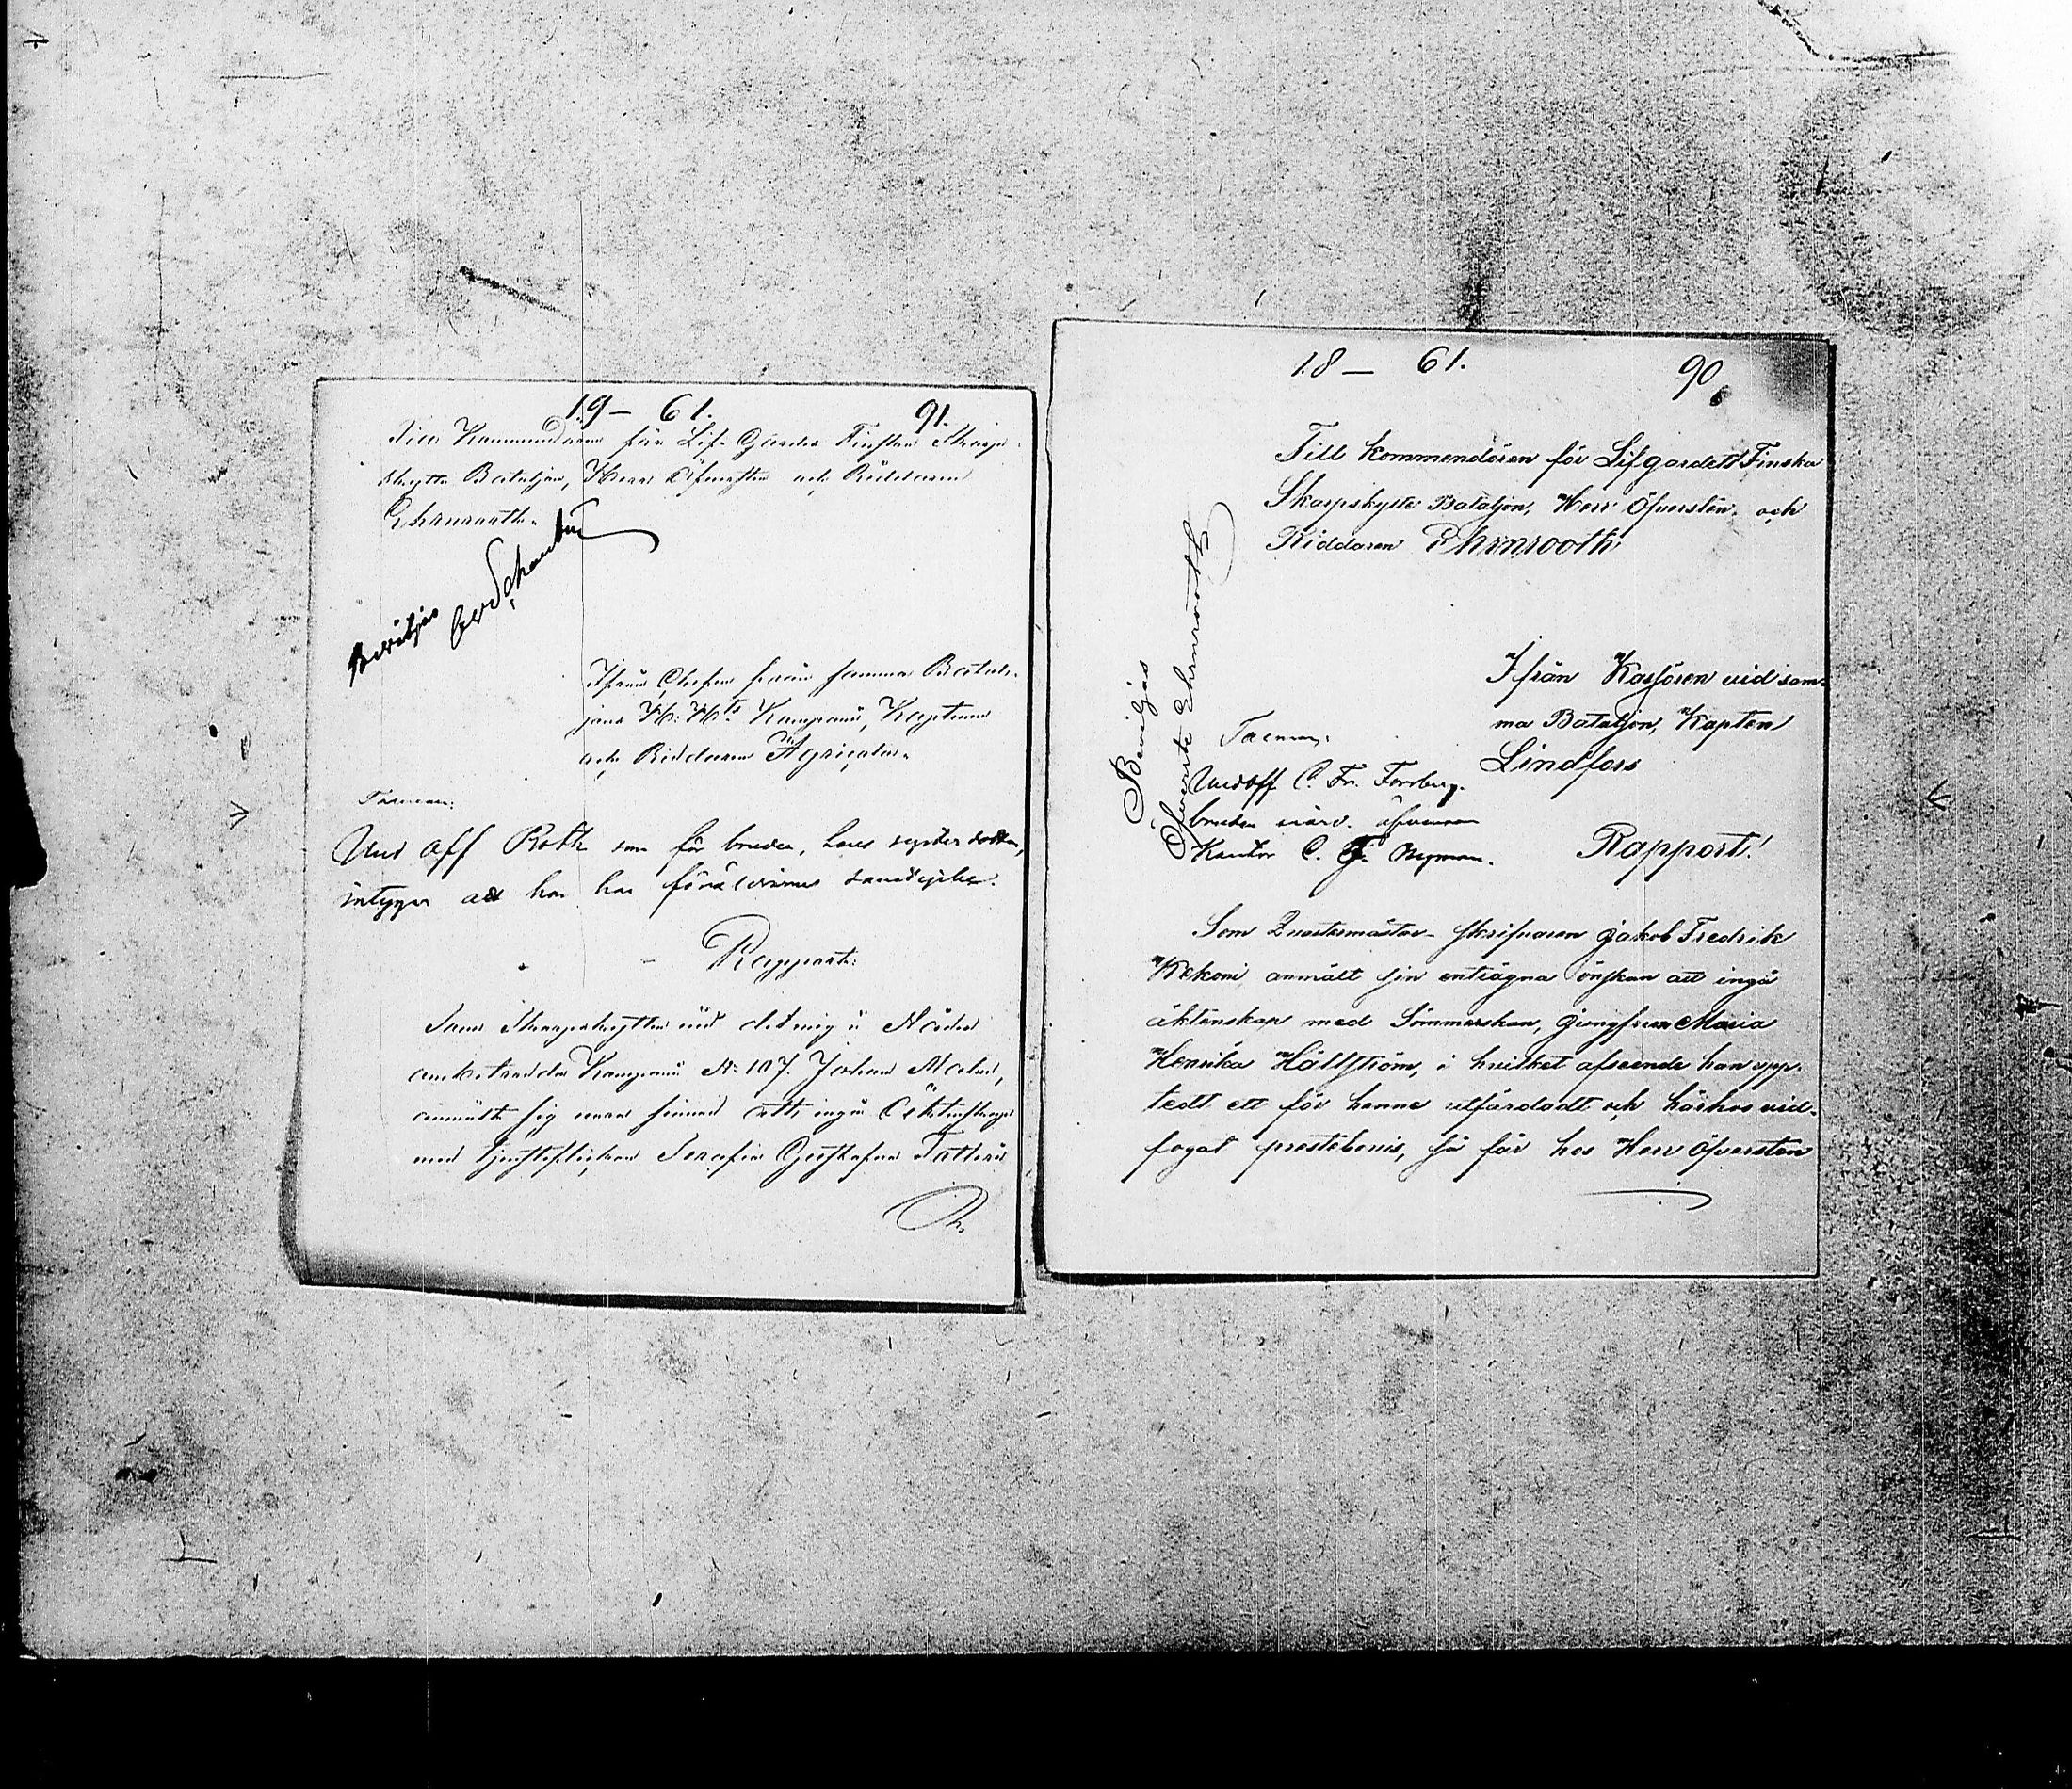 19 – 61. 91.
Till Kommendören för Lif-Gardes Finska Skarp-
skytte Bataljon, Herr Öfversten och Riddaren
Ehrnrooth.
Beviljas
Ifrån Chefen för samma Batal-
jons H: Kts Kompani, Kapten
och Riddaren Agricola.
Taerman:
Und Off Roth som för bruden, hans syster dotter,
intygar att hon har föräldrarnes samtycke.
Rapport:
Som Skarpskytten vid det mig i Nåder
anbetrodda Kompani No 107. Johan Malm,
anmält sig vara sinnad att ingå Äktenskap
med tjenstflickan Serafia Gustafva
18 – 61. 90.
Till Kommendören för Lifgardets Finska
Skarpskytte Bataljon, Herr Öfversten och
Riddaren Ehrnrooth
Beviljas
Öfverste Ehrnrooth
Ifrån Kassören vid sam-
ma Bataljon, Kapten
Lindfors
Taerman:
Undoff C. Fr. Forsberg.
bruden närv. äfvensom
Kantor C. F. Nyman.
Rapport!
Som Quartermästar-skrifvaren Jakob Fredrik
Kekoni anmält sin enträgna önskan att ingå
äktenskap med Sömmerskan, Jungfrun Maria
Henrika Hällström, i hvilket afseende han upp-
tedt ett för henne utfärdadt och härhos vid-
fogat prestebevis, så får hos Herr Öfversten